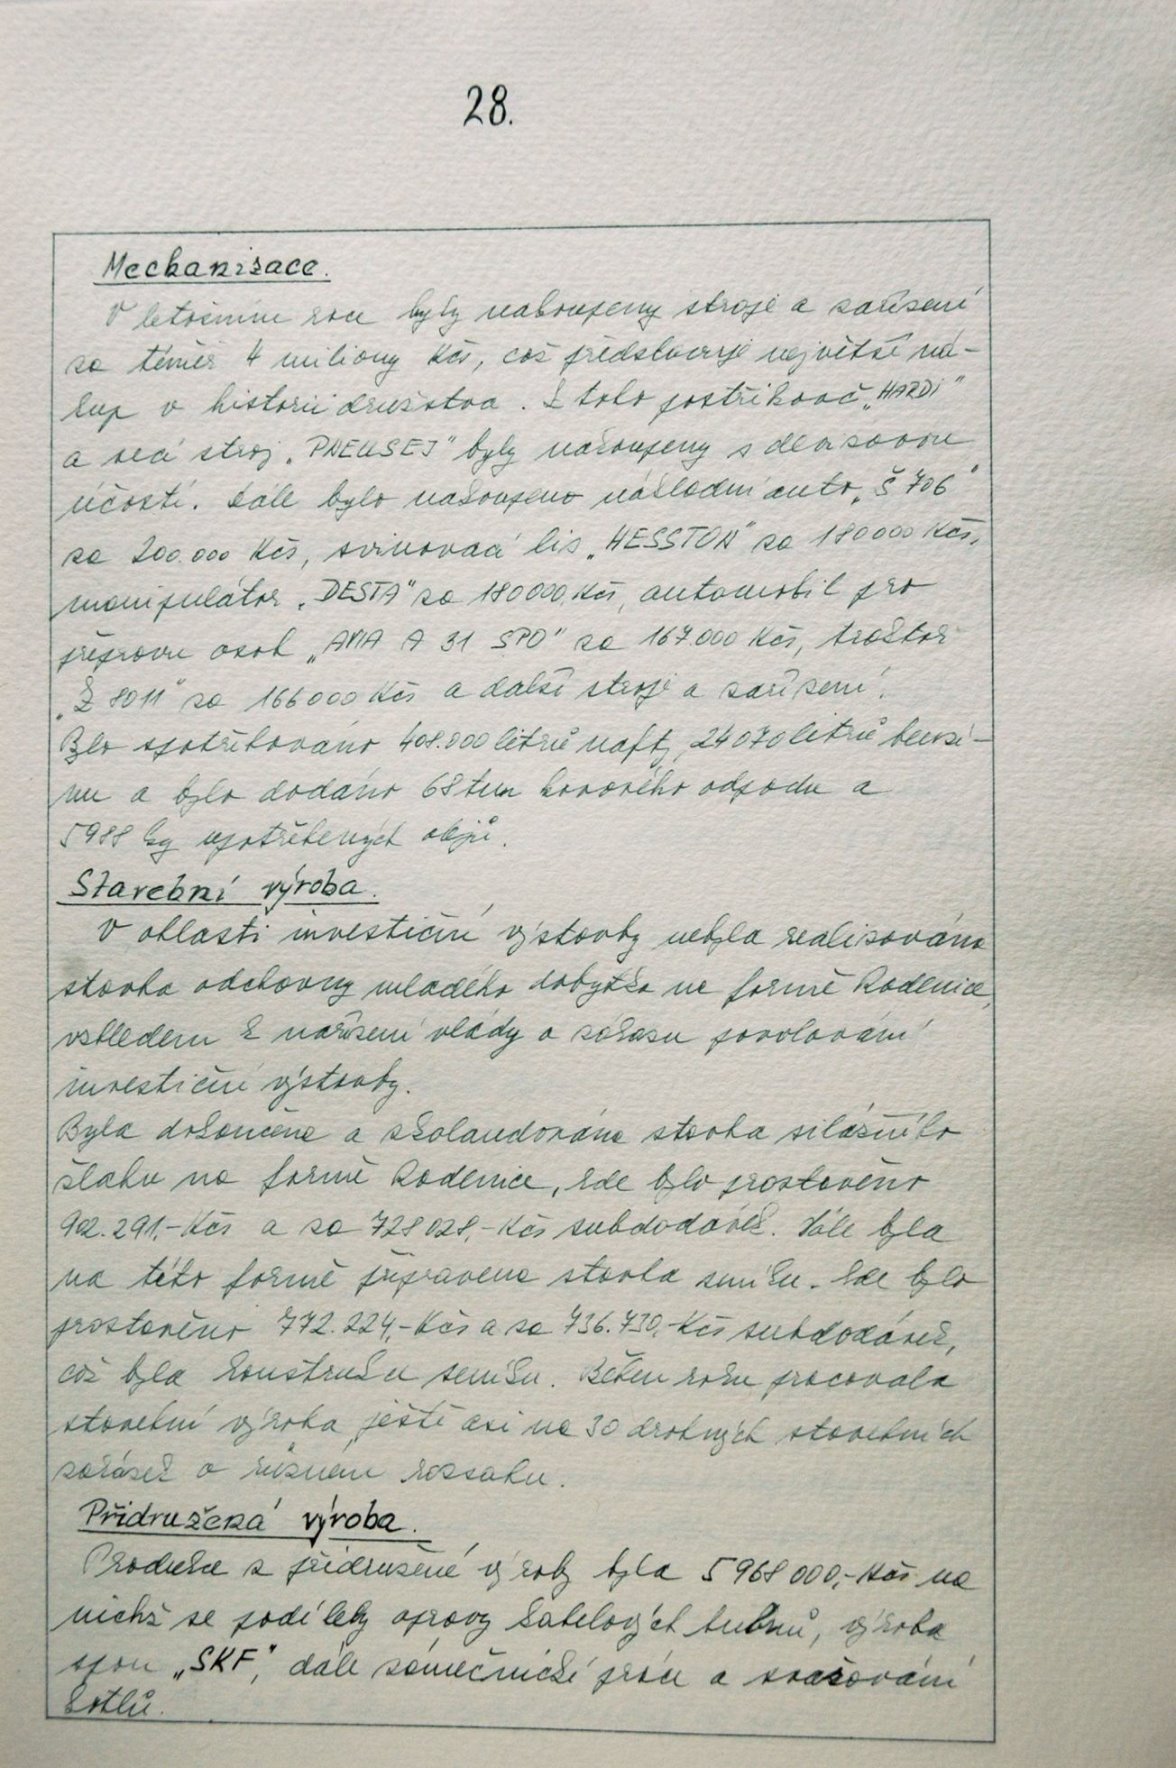 28.
Mechanizace.
V letošním roce byly nakoupeny stroje a zařízení
za téměř 4 miliony Kčs, což představuje největší ná-
kup v historii družstva. Z toho postřikovač „HARDI"
a secí stroj „PNEUSEJ" byly nakoupeny s devizovou
účastí. Dále bylo nakoupeno nákladní auto „Š 706"
za 200.000 Kčs, svinovací lis „HESSTON" za 180000 Kčs,
manipulátor „DESTA" za 180000 Kčs, automobil pro
přepravu osob „AVIA A 31 SPO" za 167.000 Kčs, traktor
„Z 8011" za 166000 Kčs a další stroje a zařízení.
Bylo spotřebováno 408.800 litrů nafty, 24070 litrů benzi-
nu a bylo dodáno 68 tun kovového odpadu a
5988 kg upotřebených olejů.
Stavební výroba.
V oblasti investiční výstavby nebyla realizována
stavba odchovny mladého dobytka na farmě Radenice,
vzhledem k nařízení vlády o zákazu povolování
investiční výstavby.
Byla dokončena a zkolaudována stavba silážního
žlabu na farmě Radenice, kde bylo prostavěno
902.291,- Kčs a za 728028,- Kčs subdodávek. Dále byla
na této farmě připravena stavba seníku. Kde bylo
prostavěno 772.224,- Kčs a za 736.730,- Kčs subdodávek,
což byla konstrukce seníku. Během roku pracovala
stavební výroba ještě asi na 30 drobných stavebních
zakázek o různém rozsahu.
Přidružená výroba.
Produkce z přidružené výroby byla 5968000,- Kčs na
nichž se podílely opravy kabelových bubnů, výroba
spon „SKF", dále zámečnické práce a svařování
kotlů.